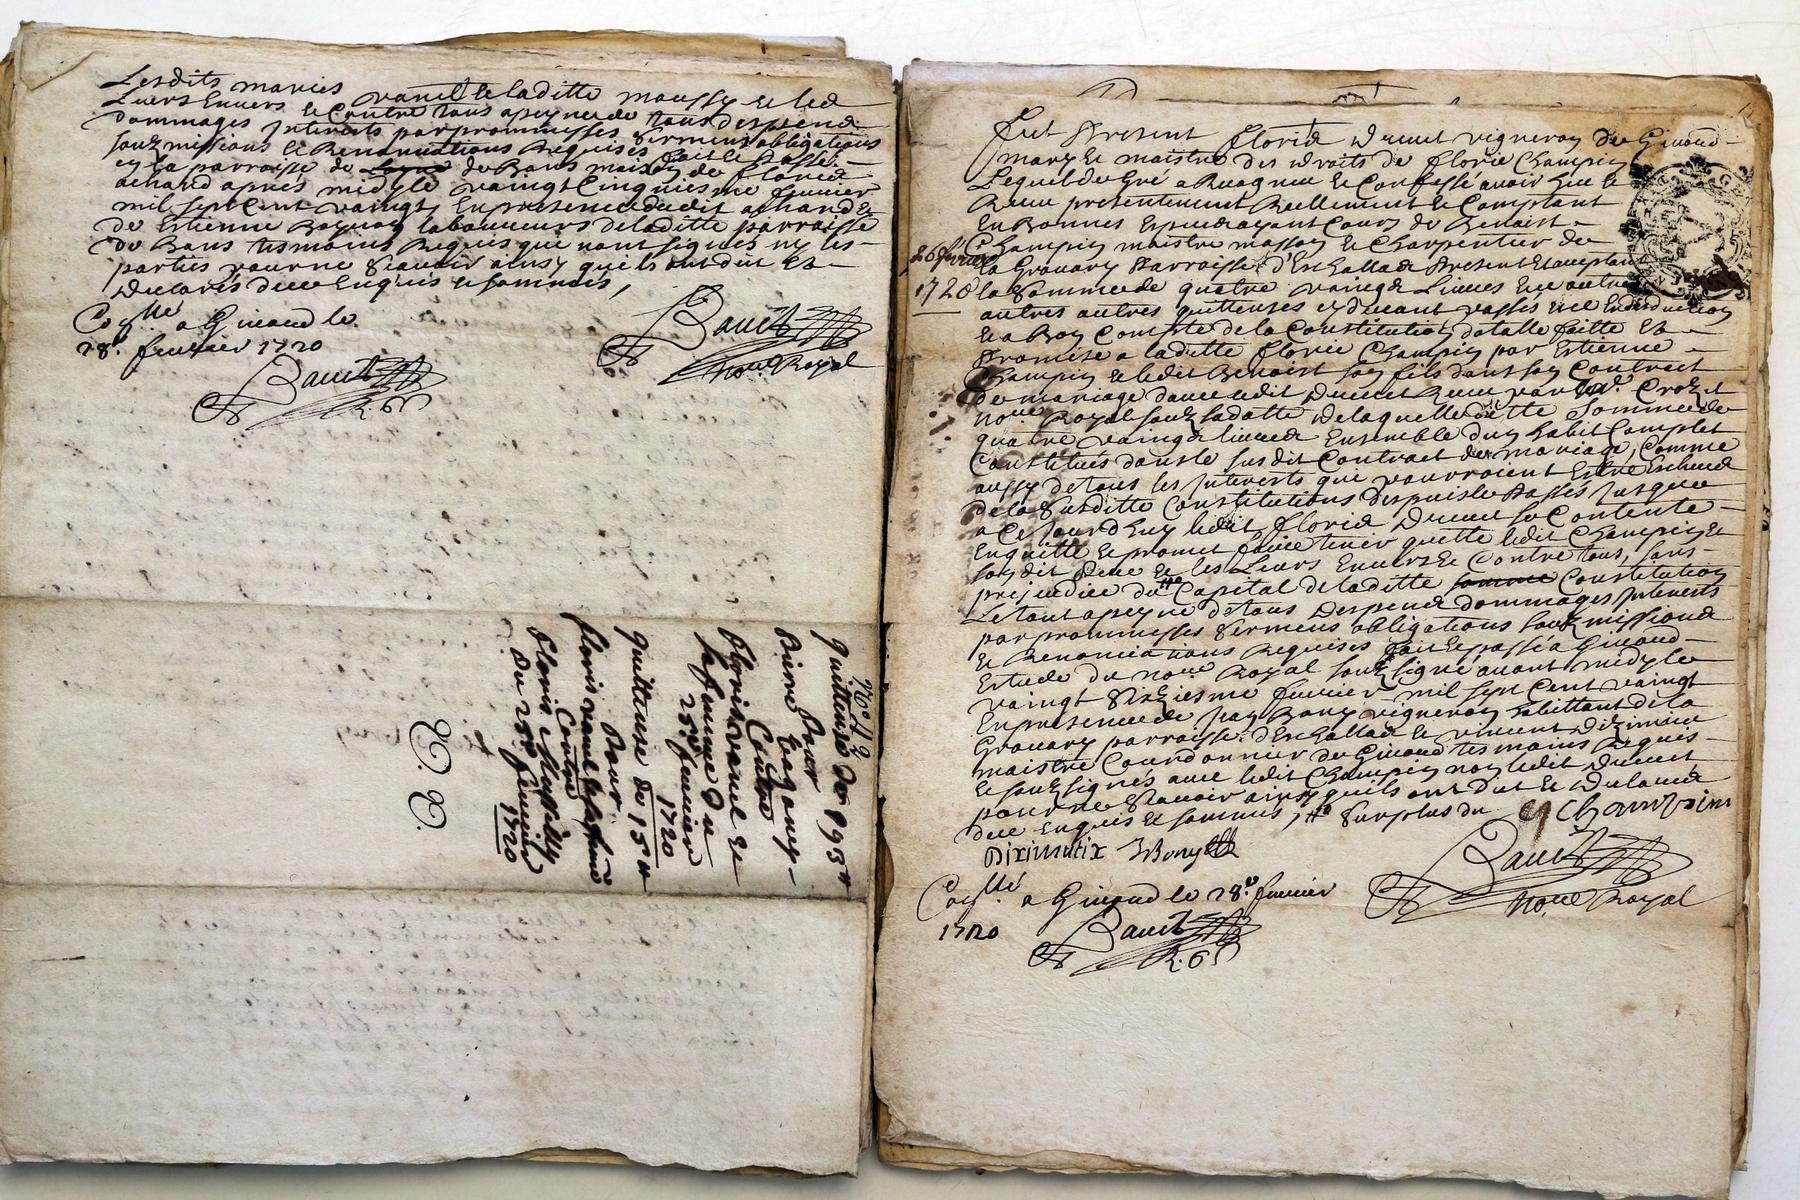 Lesdits maries vanel & laditte moussy et les
Leurs Envers et Contre tous a peyne de tous despend
dommages Interests par prommesses sermens obligations
soubz missions et Renonciations Requises fait et Passé
en la parroisse de de Bans maison de Floris
achard apres midy le vaingt Cinquiesme feuvrier
mil sept Cent vaingt, En presence dudit achard &
de Estienne laboureurs de laditte parroisse
de Bans tesmoins Requis qui nont signes ny les
parties pour ne scavoir ainsy quils ont dit et
Declarés deue Enquis et sommés,
Coll.né a Givord le
28e. feuvrier 1720
Bauet
R. 6s
Bauet
Noue. Royal
No. 42
Quittense de 893#
Pour
Pierre
Contre
Floris vanel et
sa femme du
25e. feuvrier
1720
quittense de 15#
Pour
floris vanel & sa femme
Contre
Floris
du 25e feuvrier
1720
Fut Present Floris Drevet vigneron de Givord
mary et maistre des droits de Florie Champin
Lequel de Gré a Recogneu et Confessé avoir heu et
Receu presentement Reellement et Comptant
En Bonnes Especes ayant Cours de Benoist
Champin maistre masson et Charpentier de
26 feuvrier
1720
la Grouary Parroisse d'Eschallas Present et acceptant
la Somme de quatre vaingt Livres en outre
autres autres quittenses cy devant passés en Deduction
et a Bon Compte de la Constitution dotalle faitte et
Promise a laditte Florie Champin par Estienne
Champin et ledit Benoist son fils dans son Contract
de mariage avec ledit Drevet Receu par Me. Crozet
noue. Royal soubz sa datte de laquelle ditte Somme de
quatre vaingt livres Ensemble dun habit Complet
Constitués dans le susdit Contract de mariage, Comme
aussy de tous les Interests qui pourroient Estre Escheus
de la susditte Constitutions despuis le Passés jusques
a Ce jourdhuy ledit Floris Drevet se Contente
En quitte et promet faire tenir quitte ledit Champin et
sondit Pere et les Leurs Envers et Contre tous, sans
prejudice du Capital de laditte somme Constitution
Le tout a peyne de tous Despend dommages Interests
par prommesses Sermens obligations soubz missions
et Renonciations Requises fait et passé a Givord
Estude du noue. Royal soubz signé avant midy le
vaingt Sixiesme feuvrier mil sept Cent vaingt
En presence de Jean Bony vigneron habittant de la
Grouary parroisse d'Eschallas et vincent Diximieu
maistre Courdonnier de Givord tesmoins Requis
et soubz signés avec ledit Champin non ledit Drevet
pour ne Scavoir ainsy quils ont dit et Declaré
deue Enquis et sommés, Surplus du
Champin
Diximieu J Bony
Bauet
Noue. Royal
Coll.né a Givord le 28e. feuvrier
1720
Bauet
R. 6s